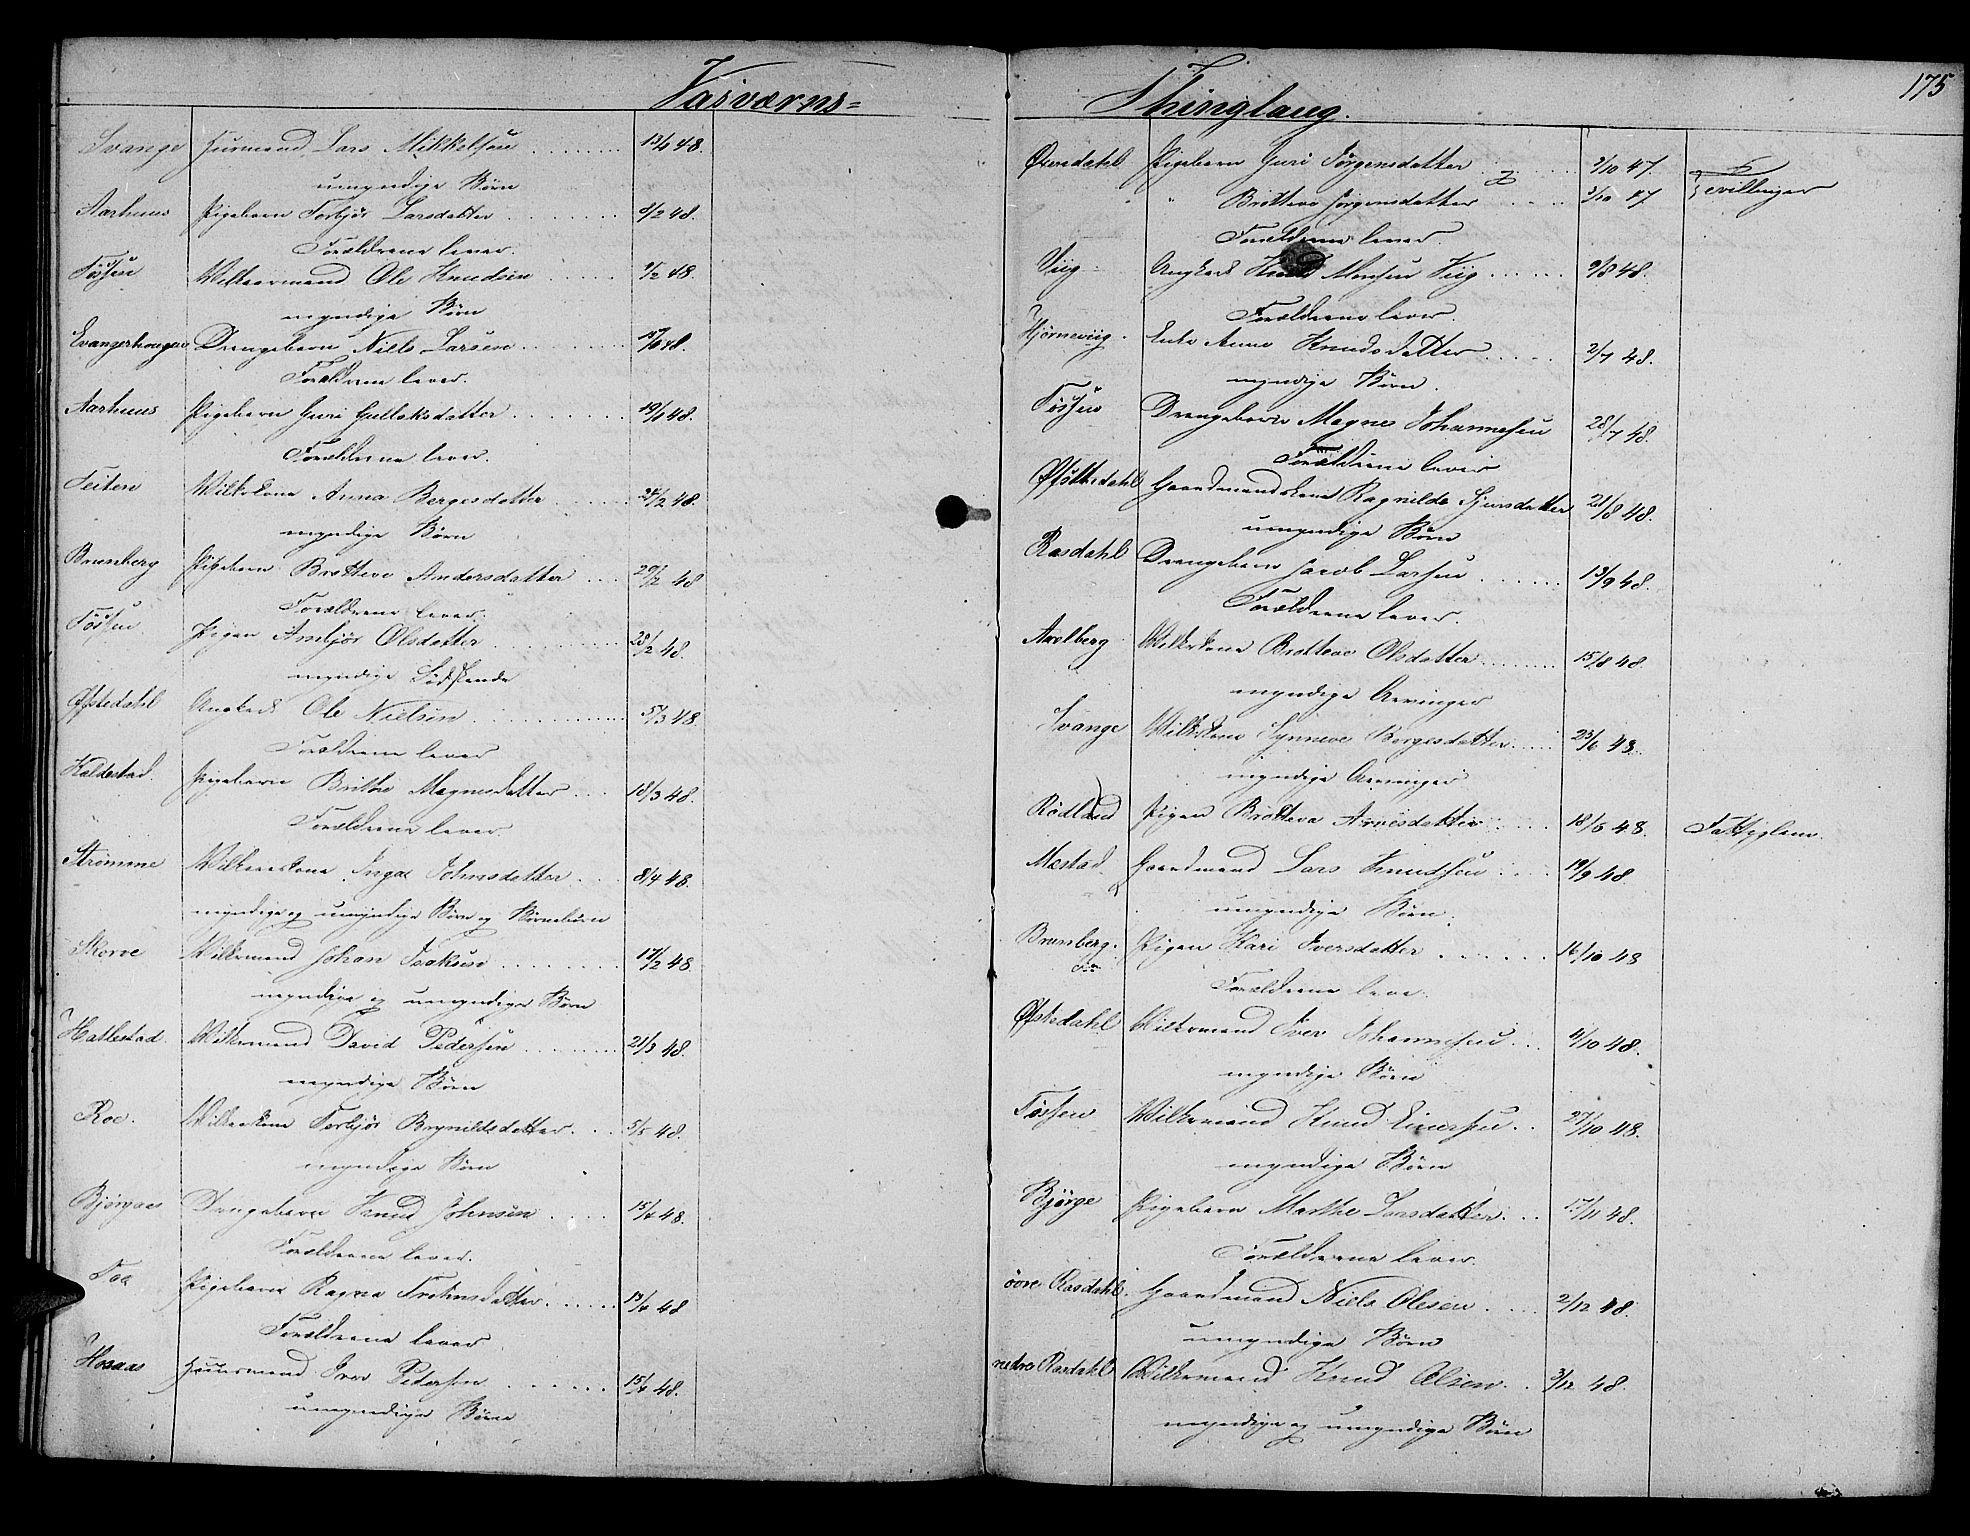 Vasværns=
Evanger Huusmand Lars Mikkelsen 13/4 48.
umyndige Børn
Aarhuus Pigebarn Torbjør Larsdatter 8/2 48.
Forældrene lever.
Fossen Wilkaarmand Ole Knudsen 9/2 48.
myndige Børn
Evangerhougen Drengebarn Niels Larsen 48.
Forældrene lever.
Aarhuus Pigebarn Guri Gullaksdatter 19/1 48.
Forældrene lever.
Teiten Wilkskone Anna Bergesdatter 24/2 48.
myndige Børn
Brunberg Pigebarn Brotteve Andersdatter 29/2 48
Forældrene lever.
Fossen Pigen Ambjør Olsdatter 28/2 48.
myndige Sødskende
Øfstedahl Ungkarl Ole Nielsen 5/3 48.
Forældrene lever
Kaldestad. Pigebarn Brithe Magnesdatter 18/3 48.
Forældrene lever.
Strømme Wilkaarskone Inga Johnsdatter 8/4 48.
myndige og umyndige Børn og Børnebørn
Skorve Wilkrmand Johan Isaksen 17/2 48
myndige og umyndige Børn
Hatlestad. Wilkrmand David Pedersen 21/3 48.
myndige Børn
Roe. Wilkaarskone Torbjør Brynildsdatter. 5/5 48.
myndige Børn
Bjørgaas Drengebarn Knud Johnsen 15/4 48.
Forældrene lever.
Toe Pigebarn Ragna Trotnsdatter 13/4 48
Forældrene lever
Hosaas Huusmand Iver Pedersen 15/4 48.
umyndige Børn
Thinglaug.
175
Øvredahl Pigebarn Guri Jørgensdatter 3/10 47.
" Brotteva Jørgensdatter 3/10 47 Tvillinger
Forældrene lever.
Viig Ungkarl Knud Monsen Viig 9/8 48.
Forældrene lever.
Hjørneviig. Enke Anne Knudsdatter 2/7 48.
myndige Børn.
Fossen Drengebarn Magnes Johannesen 28/7 48.
Forældrene lever
Øfsthedahl Gaardmandskone Ragnilde Sjursdatter 21/8 48.
umyndige Børn
Rasdahl Drengebarn Jacob Larsen 13/9 48.
Forældrene lever.
Axelberg Wilkskone Brotteve Olsdatter 15/8 48.
myndige Arvinger
Evanger Wilkskone Synneve Bergesdatter 23/6 48.
myndige Arvinger
Rødland Pigen Brotteva Arnesdatter 18/5 48. Fattiglem.
Mæstad. Gaardmand Lars Knudsen 19/9 48.
umyndige Børn.
Brunberg. Pigen Kari Iversdatter 16/10 48
Forældrene leve.
Øfstedahl Wilkrmand Iver Johannesen 4/10 48.
myndige Børn
Fossen Wilkrmand Knud Einersen 27/10 48.
myndige Børn
Bjørge Pigebarn Marthe Larsdatter. 17/11 48.
Forældrene lever.
övre Rasdahl. Gaardmand Niels Olesen 2/12 48.
umyndige Børn
nedre Rasdahl Wilkrmand Knud Olsen. 3/12 48.
myndige og umyndige Børn